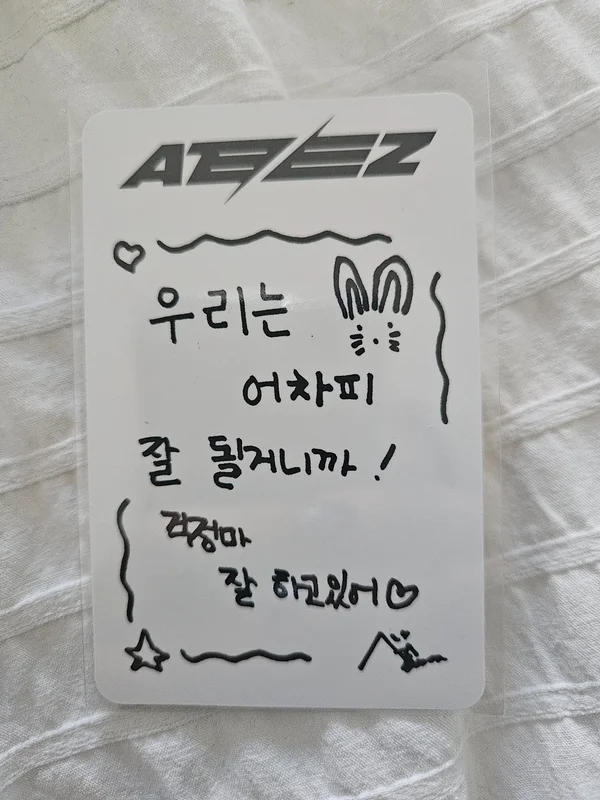 ATEEZ
우리는
어차피
잘 될거니까!
걱정마
잘 하고있어♡